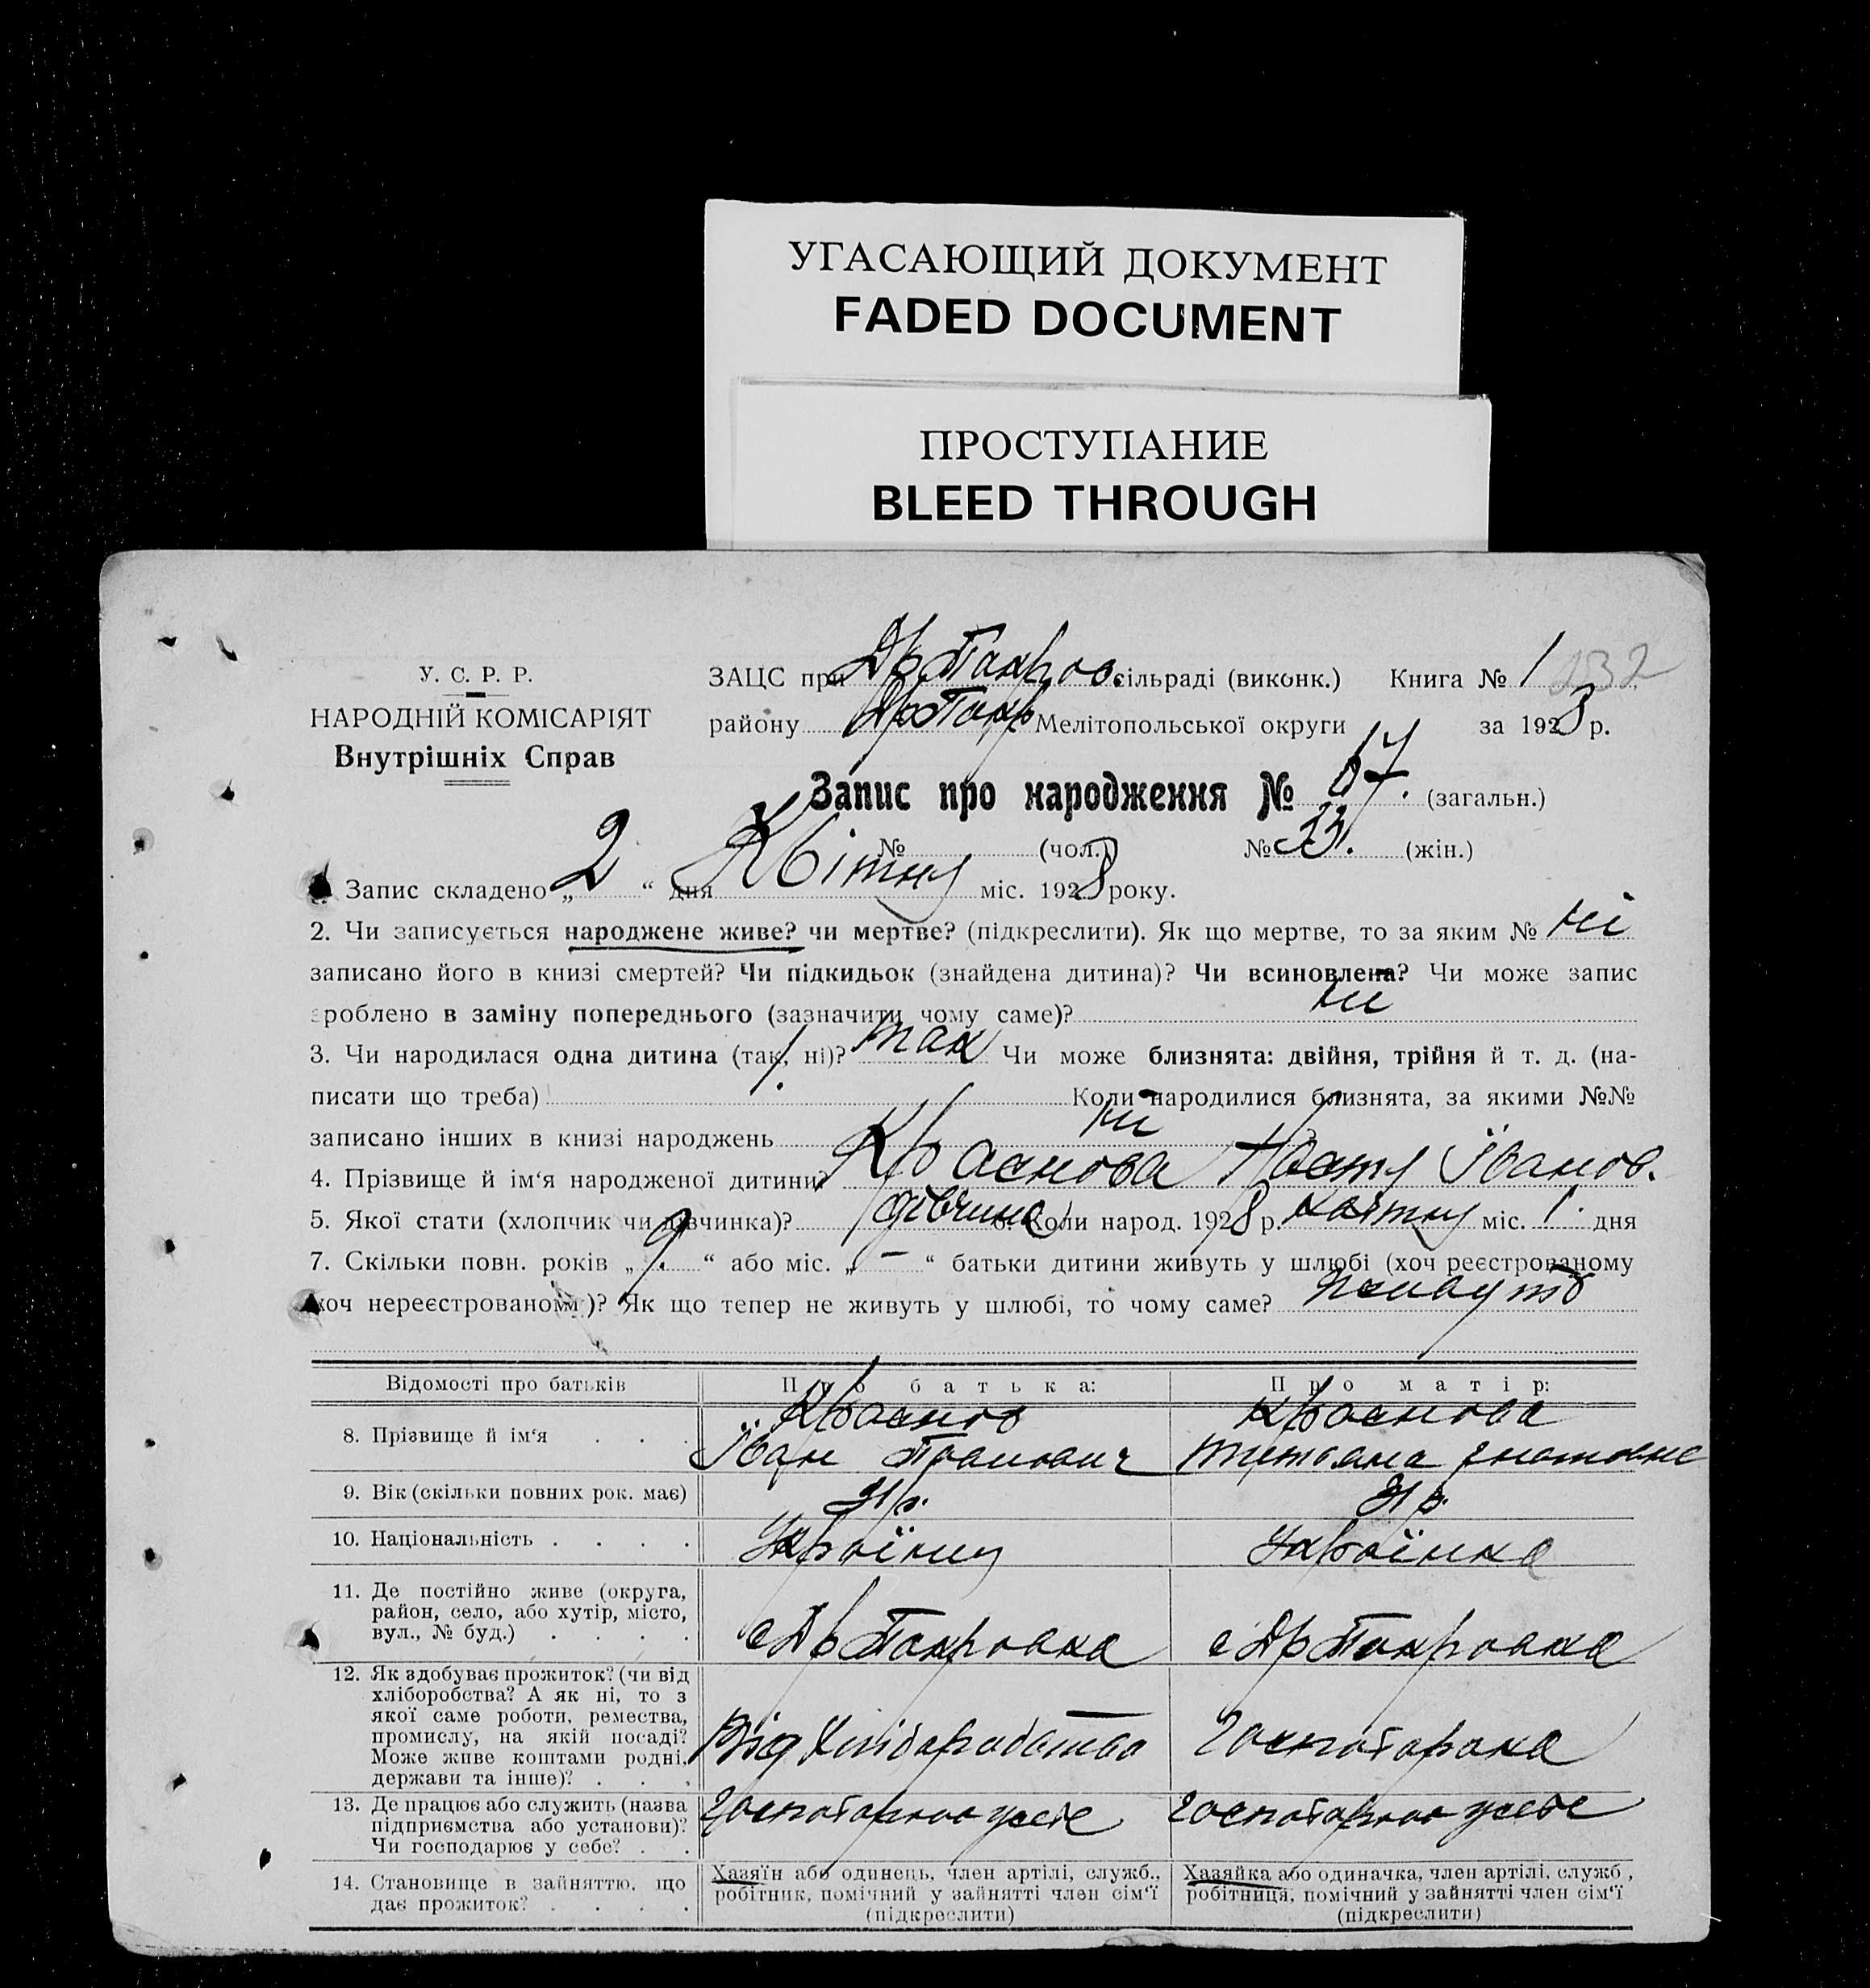 УГАСАЮЩИЙ ДОКУМЕНТ
FADED DOCUMENT
ПРОСТУПАНИЕ
BLEED THROUGH
У. С. Р. Р.
НАРОДНІЙ КОМІСАРІЯТ
Внутрішніх Справ
ЗАЦС при Др Покров. сільраді (виконк.) Книга № 1 232
району Др Покр Мелітопольської округи за 1928 р.
Запис про народження № 67. (загальн.)
№ (чол.) № 33. (жін.)
Запис складено „2“ дня Квітня міс. 1928 року.
2. Чи записується народжене живе? чи мертве? (підкреслити). Як що мертве, то за яким № ні
записано його в книзі смертей? Чи підкидьок (знайдена дитина)? Чи всиновлена? Чи може запис
зроблено в заміну попереднього (зазначити чому саме)? ни
3. Чи народилася одна дитина (так, ні)? так Чи може близнята: двійня, трійня й т. д. (на-
писати що треба) Коли народилися близнята, за якими №№
записано інших в книзі народжень ни
4. Прізвище й ім‘я народженої дитини? Краснова Настя Іванов.
5. Якої стати (хлопчик чи дівчинка)? дівчина 6. Коли народ. 1928 р. квітня міс. 1. дня
7. Скільки повн. років „9.“ або міс. „–“ батьки дитини живуть у шлюбі (хоч реєстрованому
хоч нереєстрованому)? Як що тепер не живуть у шлюбі, то чому саме?
Відомості про батьків Про батька: Про матір:
8. Прізвище й ім‘я . . . Краснов Краснова
Іван Тетяна Гнатовна
9. Вік (скільки повних рок. має) 31 р. 31 р.
10. Національність . . . . Українц Українка
11. Де постійно живе (округа,
район, село, або хутір, місто,
вул., № буд.) . . . . с Др Покровка с Др Покровка
12. Як здобуває прожиток? (чи від
хліборобства? А як ні, то з
якої саме роботи, ремества,
промислу, на якій посаді?
Може живе коштами родні,
держави та інше)? . . . Від Хліборобства
13. Де працює або служить (назва
підприємства або установи)?
Чи господарює у себе? . .
14. Становище в зайняттю, що
дає прожиток? . . . .
Хазяїн або одинець, член артілі, служб.,
робітник, помічний у зайнятті член сім‘ї
(підкреслити)
Хазяйка або одиначка, член артілі, служб,
робітниця, помічний у зайнятті член сім‘ї
(підкреслити)